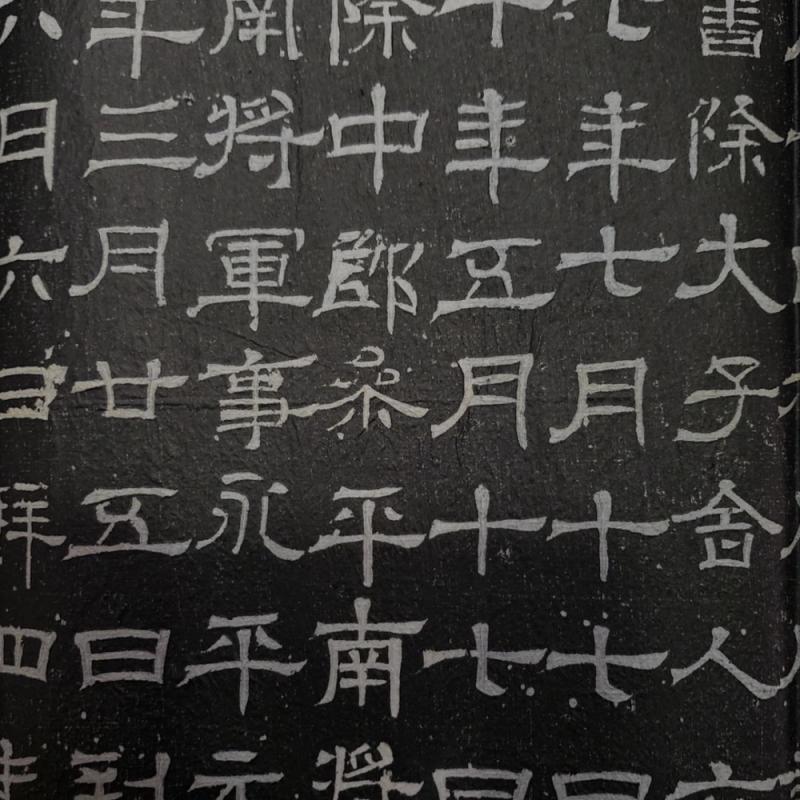 書除大子舍人
七年七月十七日
年五月十七日
除中郎參平南將
南將軍事永平元
年三月廿五日到
月六日拜四